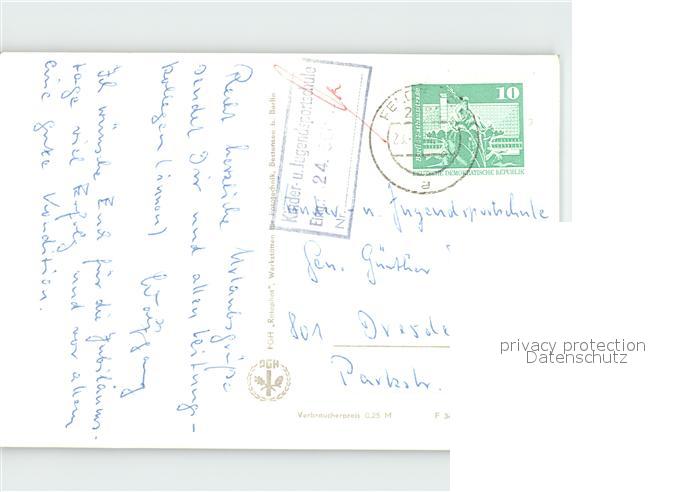 Recht herzliche Urlaubsgrüße
sendet Dir und allen Leitung-
kollegen (innen) Wolfgang
Ich wünsche Euch für die Jubiläums-
tage viel Erfolg und vor allem
eine gute Kondition.
PGH „Rotophot", Werkstätten für Fototechnik, Bestensee b. Berlin
Kinder- u. Jugendsportschule
24.
Nr.
10
DEUTSCHE DEMOKRATISCHE REPUBLIK
u. Jugendsportschule
Gen. Günther
801 Dresde
Parkstr.
PGH
Verbraucherpreis 0,25 M
privacy protection
Datenschutz